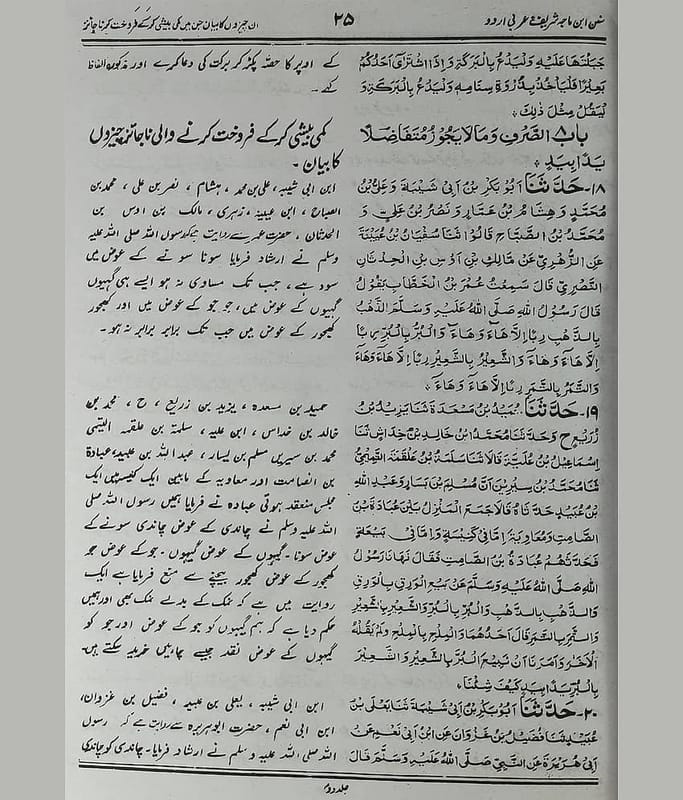 سنن ابن ماجہ شریف عربی اردو
۲۵
ان چیزوں کا بیان جن میں کمی بیشی کر کے فروخت کرنا جائز
جَبَلْتَهَا عَلَيْهِ وَلْيَدْعُ بِالْبَرَكَةِ وَإِذَا اشْتَرٰى أَحَدُكُمْ
بَعِيْرًا فَلْيَأْخُذْ بِذُرْوَةِ سَنَامِهِ وَلْيَدْعُ بِالْبَرَكَةِ وَ
لْيَقُلْ مِثْلَ ذٰلِكَ
باب ۸ الصَّرْفِ وَمَا لَا يَجُوْزُ مُتَفَاضِلًا
يَدًا بِيَدٍ
۱۸- حَدَّثَنَا أَبُوْ بَكْرِ بْنُ أَبِيْ شَيْبَةَ وَعَلِيُّ بْنُ
مُحَمَّدٍ وَهِشَامُ بْنُ عَمَّارٍ وَنَصْرُ بْنُ عَلِيٍّ وَ
مُحَمَّدُ بْنُ الصَّبَّاحِ قَالُوْا ثَنَا سُفْيَانُ بْنُ عُيَيْنَةَ
عَنِ الزُّهْرِيِّ عَنْ مَالِكِ بْنِ أَوْسِ بْنِ الْحَدَثَانِ
النَّصْرِيِّ قَالَ سَمِعْتُ عُمَرَ بْنَ الْخَطَّابِ يَقُوْلُ
قَالَ رَسُوْلُ اللهِ صَلَّى اللهُ عَلَيْهِ وَسَلَّمَ الذَّهَبُ
بِالذَّهَبِ رِبًا إِلَّا هَاءَ وَهَاءَ وَالْبُرُّ بِالْبُرِّ رِبًا
إِلَّا هَاءَ وَهَاءَ وَالشَّعِيْرُ بِالشَّعِيْرِ رِبًا إِلَّا هَاءَ وَهَاءَ
وَالتَّمْرُ بِالتَّمْرِ رِبًا إِلَّا هَاءَ وَهَاءَ
۱۹- حَدَّثَنَا حُمَيْدُ بْنُ مَسْعَدَةَ ثَنَا يَزِيْدُ بْنُ
زُرَيْعٍ ح وَحَدَّثَنَا مُحَمَّدُ ابْنُ خَالِدِ بْنِ خِدَاشٍ ثَنَا
إِسْمَاعِيْلُ بْنُ عُلَيَّةَ قَالَا ثَنَا سَلَمَةُ بْنُ عَلْقَمَةَ التَّمِيْمِيُّ
ثَنَا مُحَمَّدُ بْنُ سِيْرِيْنَ أَنَّ مُسْلِمَ بْنَ يَسَارٍ وَعَبْدَ اللهِ
بْنَ عُبَيْدٍ حَدَّثَاهُ قَالَا جَمَعَ الْمَنْزِلُ بَيْنَ عُبَادَةَ بْنِ
الصَّامِتِ وَمُعَاوِيَةَ إِمَّا فِيْ كَنِيْسَةٍ وَإِمَّا فِيْ بِيْعَةٍ
فَحَدَّثَهُمْ عُبَادَةُ بْنُ الصَّامِتِ فَقَالَ نَهَانَا رَسُوْلُ
اللهِ صَلَّى اللهُ عَلَيْهِ وَسَلَّمَ عَنْ بَيْعِ الْوَرِقِ بِالْوَرِقِ
وَالذَّهَبِ بِالذَّهَبِ وَالْبُرِّ بِالْبُرِّ وَالشَّعِيْرِ بِالشَّعِيْرِ
وَالتَّمْرِ بِالتَّمْرِ قَالَ أَحَدُهُمَا وَالْمِلْحِ بِالْمِلْحِ وَلَمْ يَقُلْهُ
الْآخَرُ وَأَمَرَنَا أَنْ نَبِيْعَ الْبُرَّ بِالشَّعِيْرِ وَالشَّعِيْرَ
بِالْبُرِّ يَدًا بِيَدٍ كَيْفَ شِئْنَا
۲۰- حَدَّثَنَا أَبُوْ بَكْرِ بْنُ أَبِيْ شَيْبَةَ ثَنَا يَعْلَى بْنُ
عُبَيْدٍ ثَنَا فُضَيْلُ بْنُ غَزْوَانَ عَنِ ابْنِ أَبِيْ نُعْمٍ عَنْ
أَبِيْ هُرَيْرَةَ عَنِ النَّبِيِّ صَلَّى اللهُ عَلَيْهِ وَسَلَّمَ قَالَ
کے اوپر کا حصّہ پکڑ کر برکت کی دعا کرے اور مذکورہ الفاظ
کہے۔
کمی بیشی کر کے فروخت کرنے والی ناجائز چیزوں
کا بیان۔
ابن ابی شیبہ، علی بن محمد، ہشام، نصر بن علی، محمد بن
الصباح، ابن عیینہ، زہری، مالک بن اوس بن
الحدثان، حضرت عمر سے روایت ہے کہ رسول اللہ صلی اللہ علیہ
وسلم نے ارشاد فرمایا سونا سونے کے عوض میں
سود ہے، جب تک مساوی نہ ہو ایسے ہی گیہوں
گیہوں کے عوض میں، جو جو کے عوض میں اور کھجور
کھجور کے عوض میں جب تک برابر برابر نہ ہو۔
حمید بن مسعدہ، یزید بن زریع، ح، محمد بن
خالد بن خداس، ابن علیہ، سلمۃ بن علقمہ التیمی
محمد بن سیریں مسلم بن یسار، عبد اللہ بن عبید، عبادة
بن الصامت اور معاویہ کے مابین ایک کنیسہ میں ایک
مجلس منعقد ہوئی عبادہ نے فرمایا ہمیں رسول اللہ صلی
اللہ علیہ وسلم نے چاندی کے عوض چاندی سونے کے
عوض سونا۔ گیہوں کے عوض گیہوں۔ جو کے عوض جو
کھجور کے عوض کھجور بیچنے سے منع فرمایا ہے ایک
روایت میں ہے کہ نمک کے بدلے نمک بھی اور ہمیں
حکم دیا ہے کہ ہم گیہوں کو جو کے عوض اور جو کو
گیہوں کے عوض نقد جیسے چاہیں خرید سکتے ہیں۔
ابن ابی شیبہ، یعلی بن عبید، فضیل بن غزوان،
ابن ابی نعم، حضرت ابوہریرہ سے روایت ہے کہ رسول
اللہ صلی اللہ علیہ وسلم نے ارشاد فرمایا۔ چاندی کو چاندی
جلد دوم